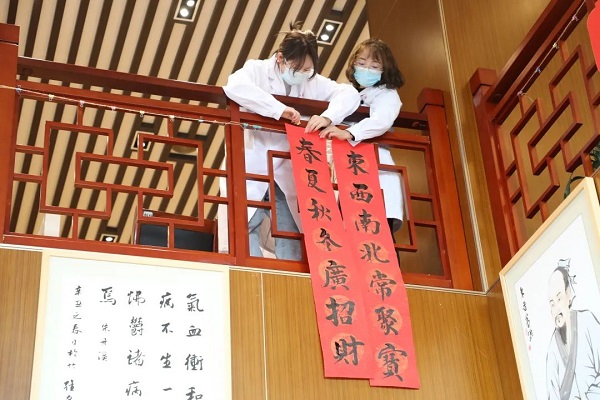 東西南北常聚寶
春夏秋冬廣招財
氣血衝和
病不生一
怫鬱諸病
焉 朱丹溪
辛丑之春